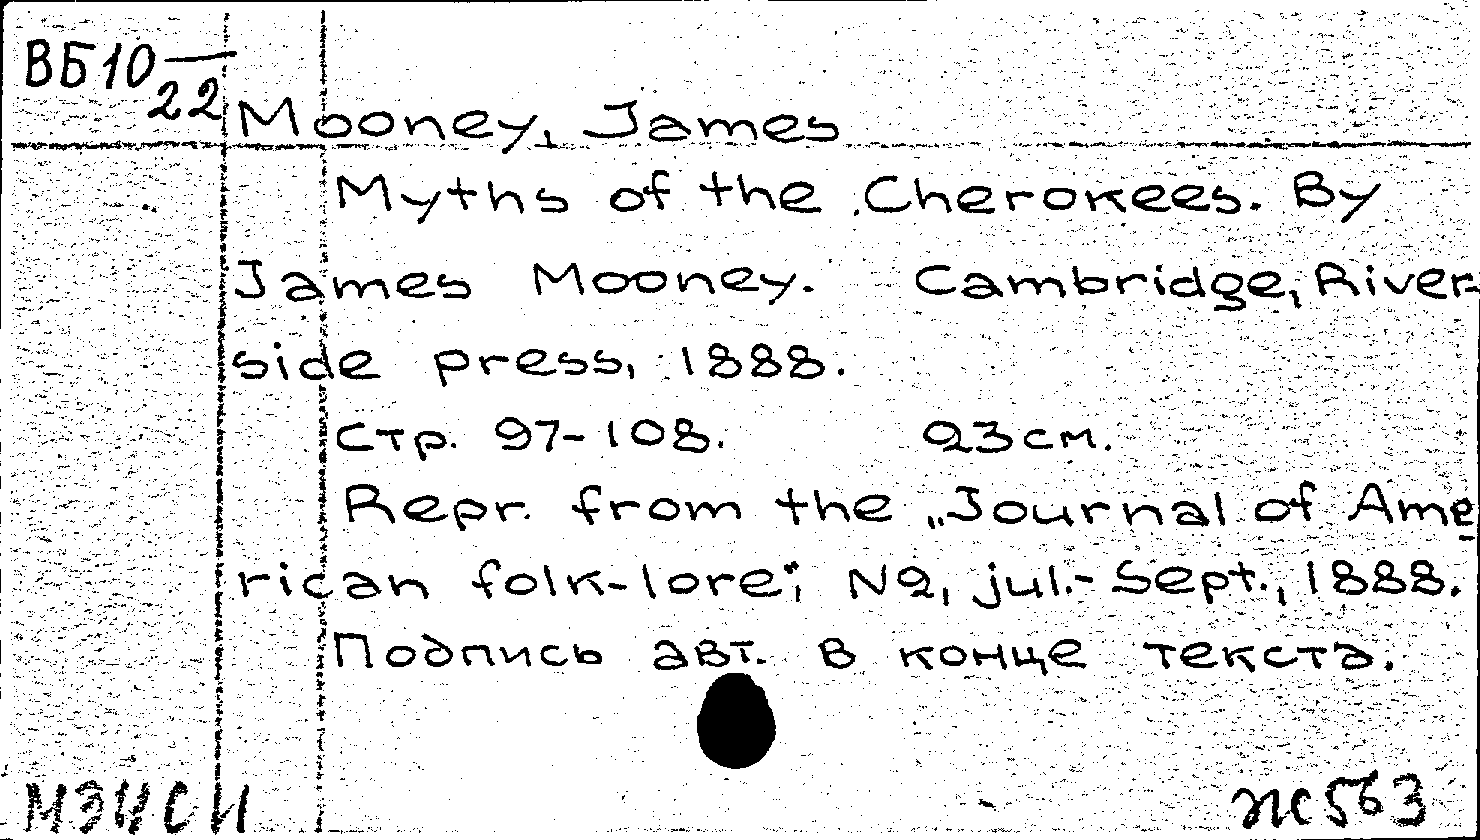 ВБ10—
22
Mooney, James
Myths of the Cherokees. By
James Mooney. Cambridge, River-
side press, 1888.
Стр. 97-108. 23 см.
Repr. from the „Journal of Ame-
rican folk-lore", N2, jul.-Sept., 1888.
Подпись авт. в конце текста.
МЭИСИ
Ж563